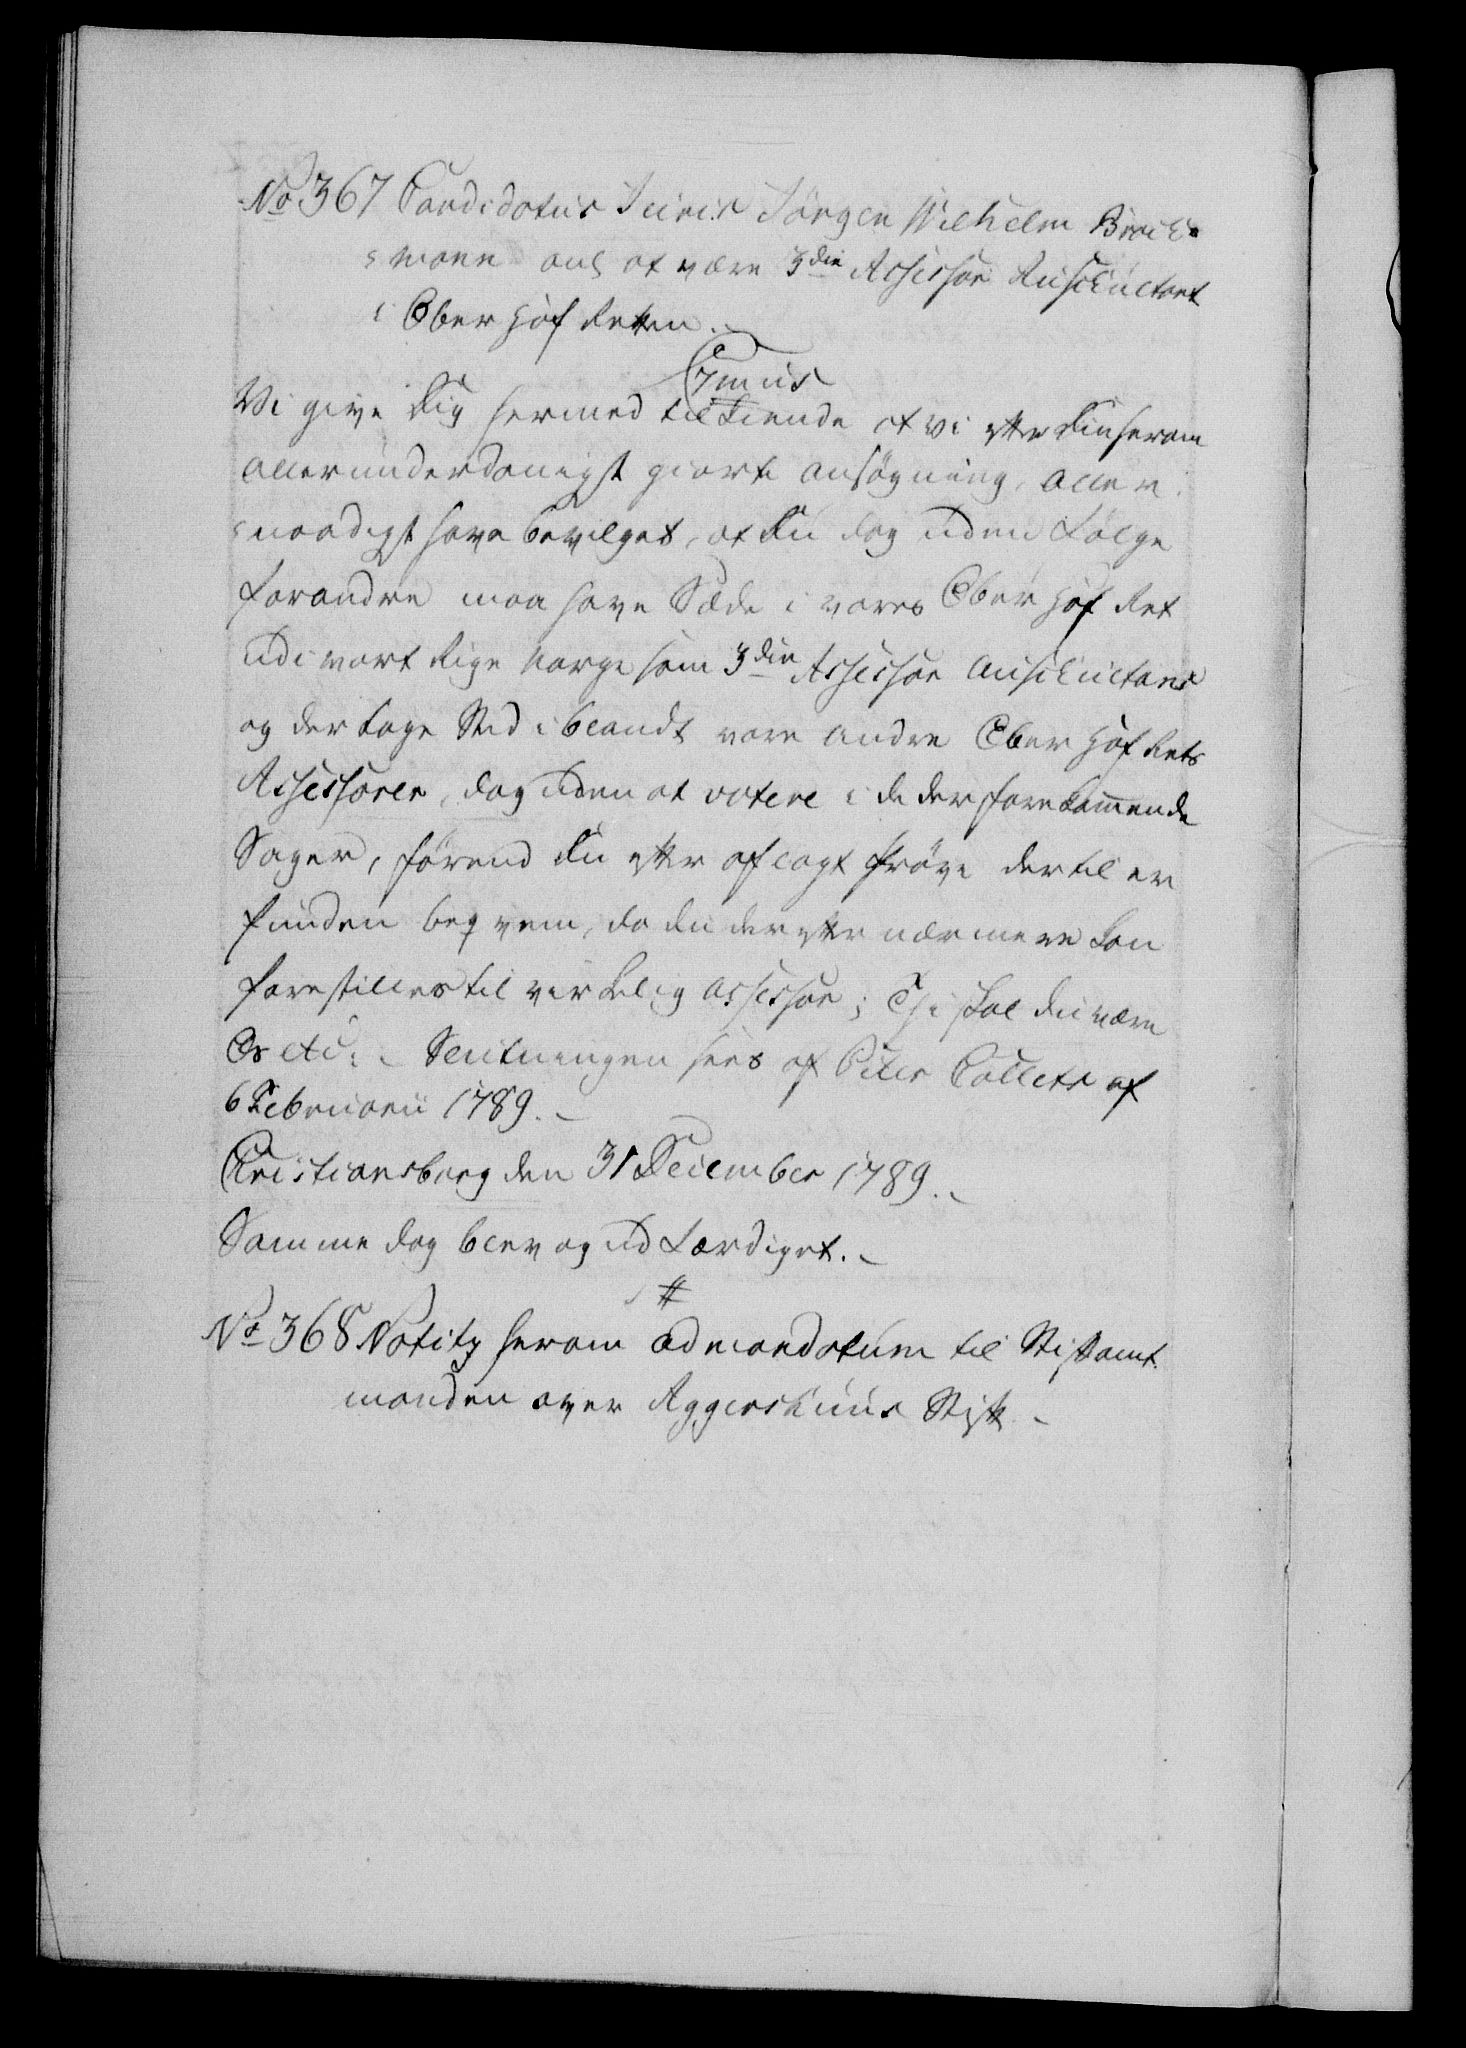 No 367 Candidatus Juris Jörgen Wilhelm Brock-
-mann ans at være 3die Assessor Auscultant
i Ober Hof Retten.
C 7mus
Vi give Dig hermed tilkiende at vi efter Din herom
allerunderdanigst giorte ansøgning, aller-
-naadigst have bevilget, at Du dog uden Følge
for andre maa have Sæde i vores Ober Hof Ret
udi vort Rige Norge som 3die Assessor auscultans
og der tage Sted iblandt vore andre Ober Hof Rets
Assessorer, dog uden at votere i de der forekommende
Sager, førend Du efter aflagt Prøve dertil er
funden beqvem, da du derefter nærmere kan
forestilles til virkelig assessor; Thi skal du være
Os etc. Slutningen sees af Peter Collets af
6 Februarii 1789.
Christiansborg den 31 December 1789.
Samme dag blev og udfærdiget.
#
No 368 Notitz herom ad mandatum til Stiftamt-
manden over Aggershuus Stift